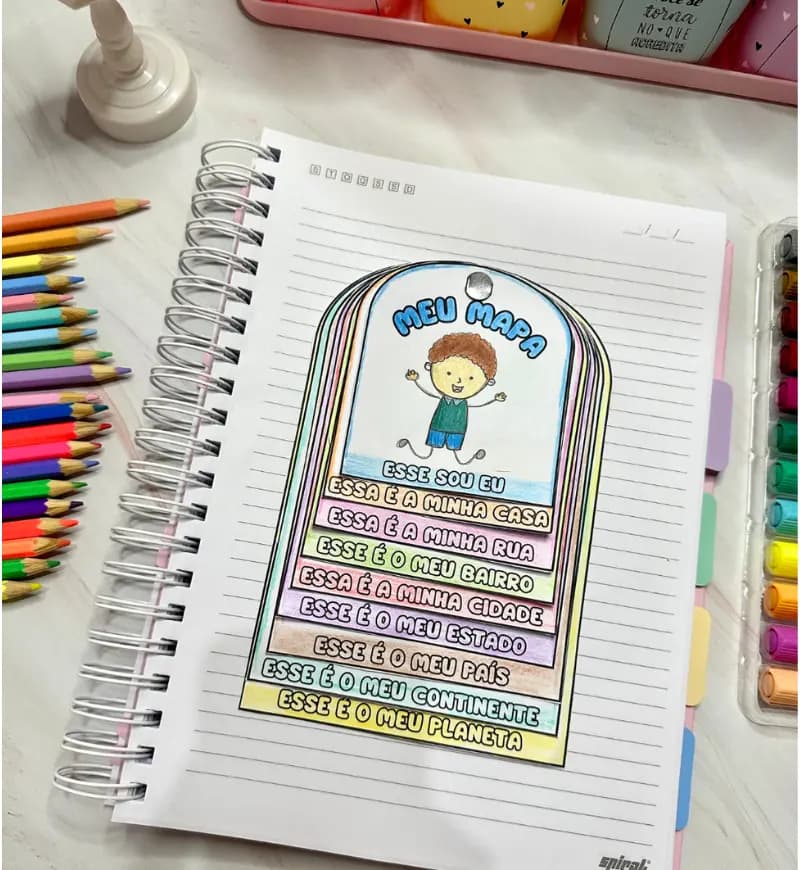 SE
torna
NO QUE
ACREDITA
S T Q Q S S D
__/__/__
MEU MAPA
ESSE SOU EU
ESSA É A MINHA CASA
ESSA É A MINHA RUA
ESSE É O MEU BAIRRO
ESSA É A MINHA CIDADE
ESSE É O MEU ESTADO
ESSE É O MEU PAÍS
ESSE É O MEU CONTINENTE
ESSE É O MEU PLANETA
spiral